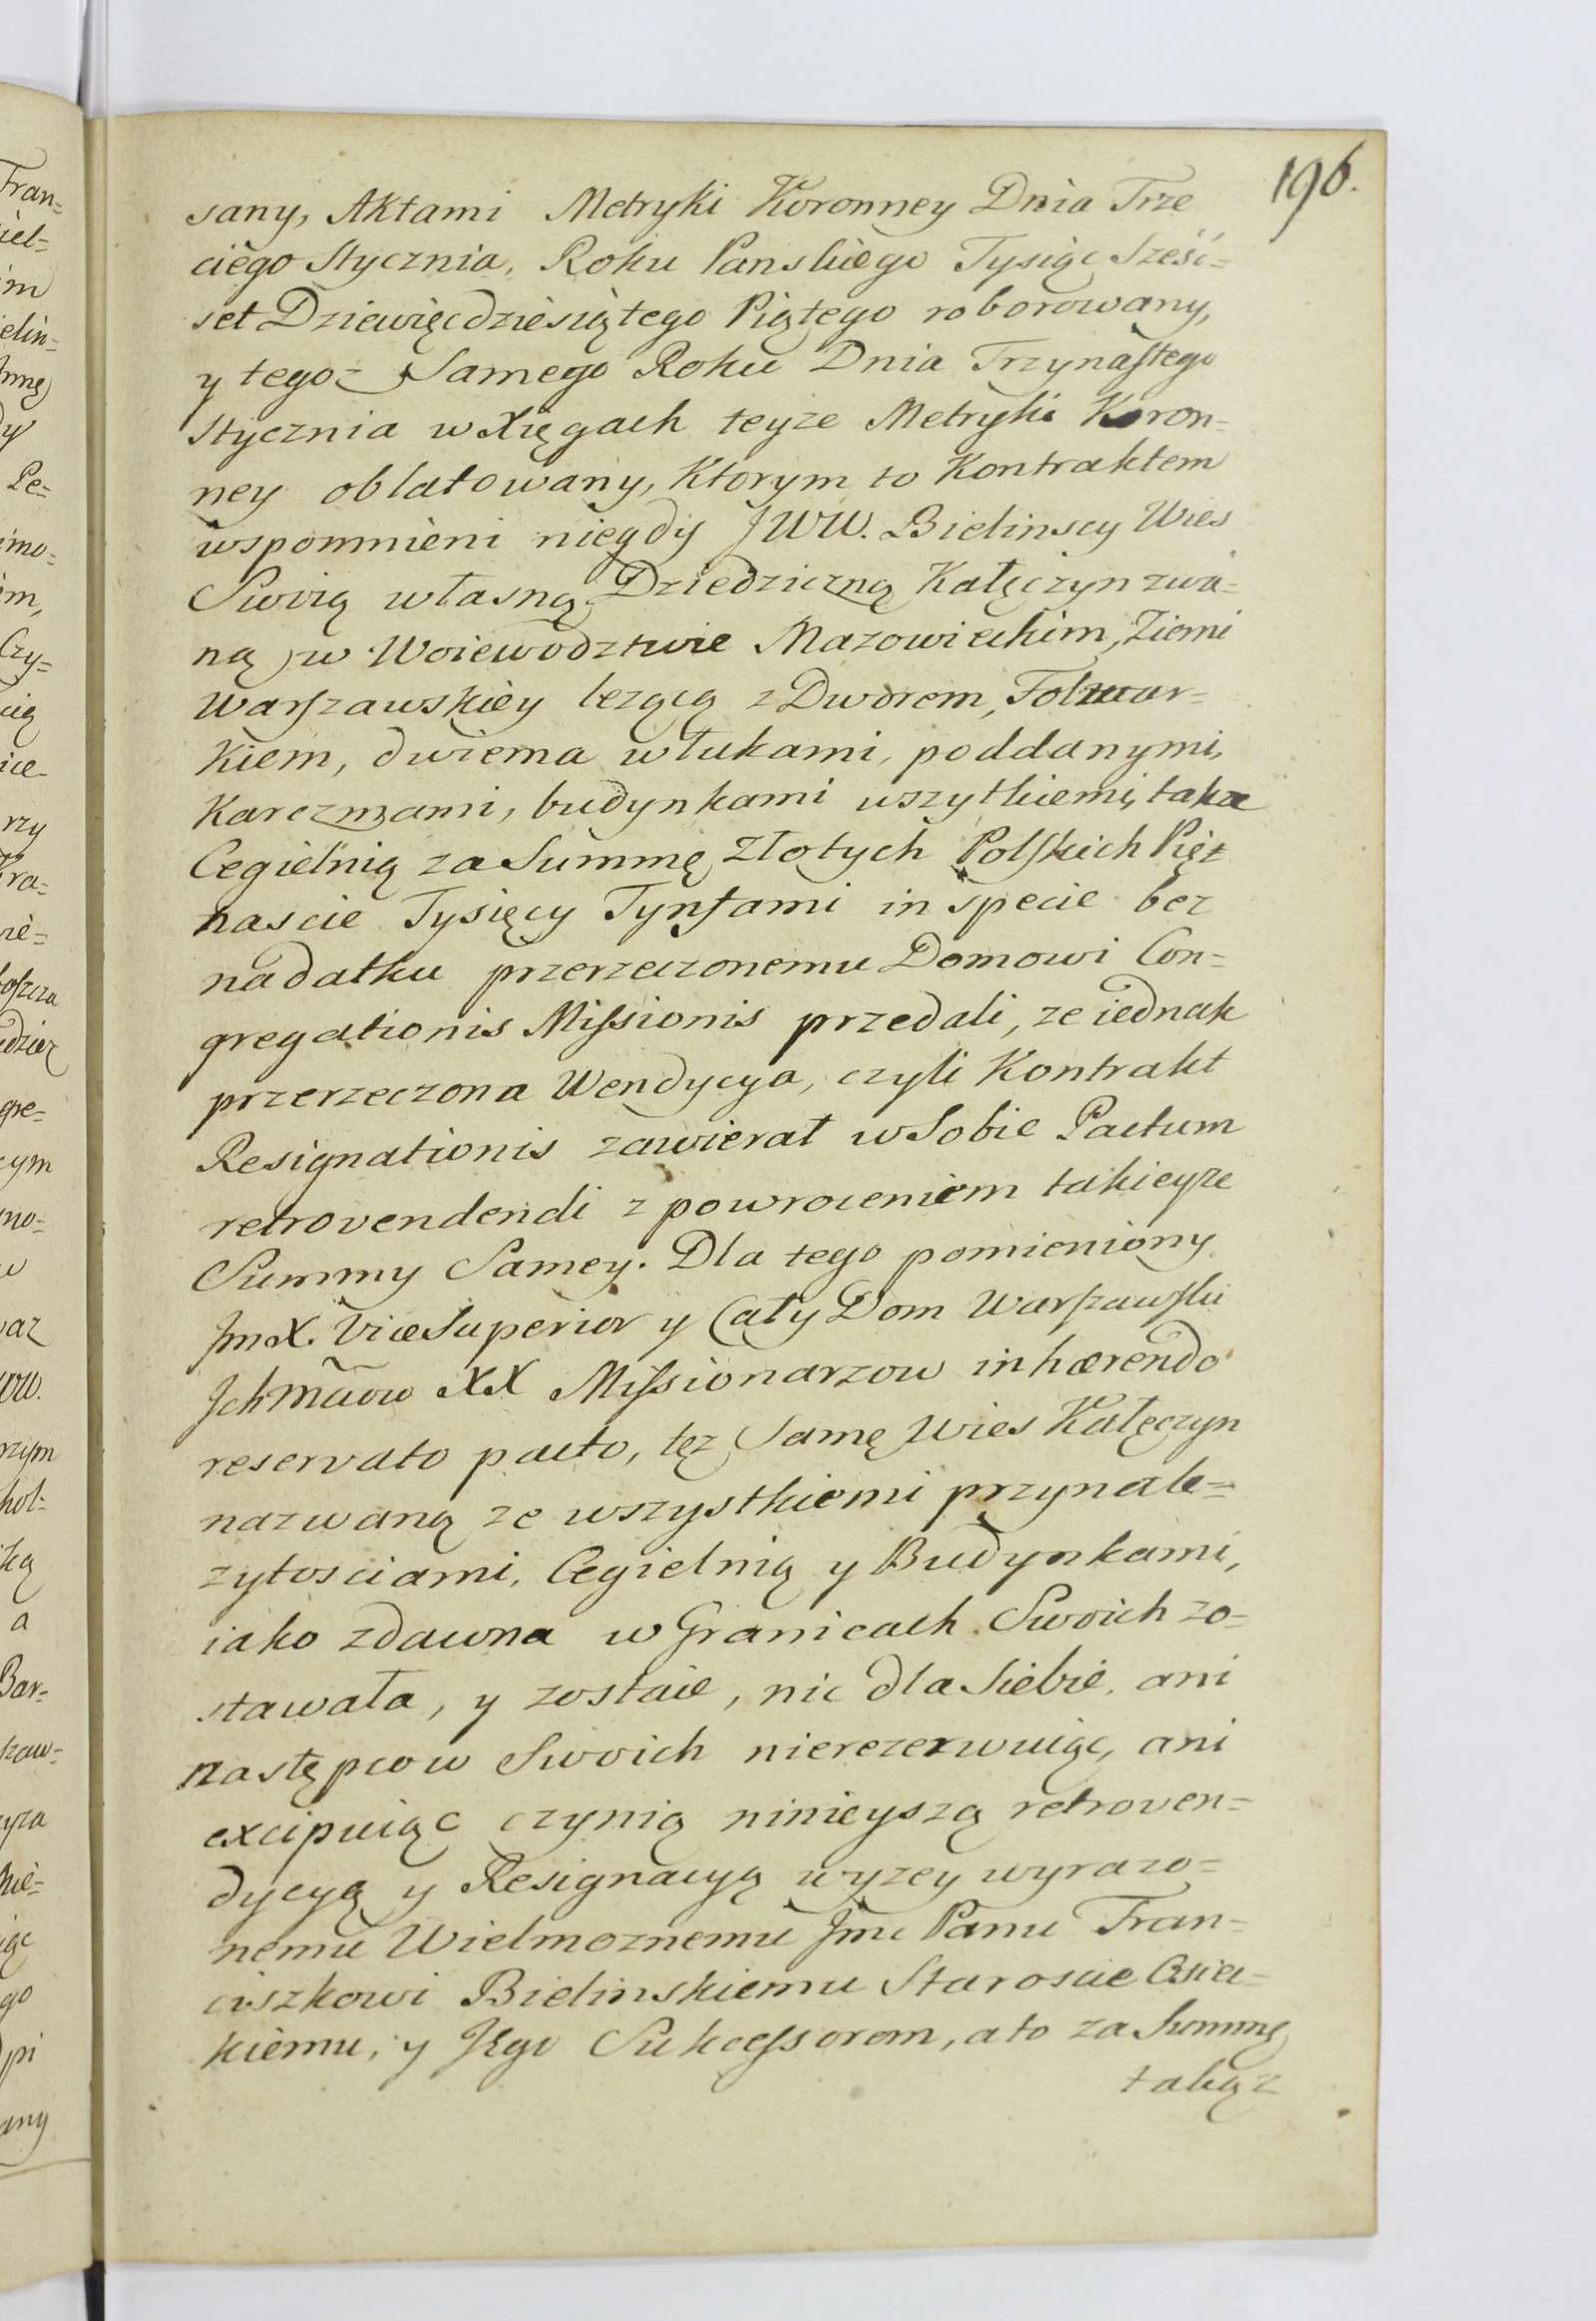 196.
sany, Aktami Metryki Koronney Dnia Trze
ciego Stycznia, Roku Panskiego Tysiąc Sześć=
set Dziewięcdziesiątego Piątego roborowany,
y tego= Samego Roku Dnia Trzynastego
Stycznia w Xięgach teyze Metryki Koron=
ney oblatowany, Ktorym to Kontraktem
wspomnieni niegdy JWW. Bielinscy Wies
Swoią własną Dziedziczną Kałęczyn zwa=
ną w Woiewodztwie Mazowieckim, Ziemi
Warszawskiey lezącą z Dworem, Folwar=
kiem, dwiema włukami, poddanymi,
Karczmami, budynkami wszytkiemi, takze
Cegielnią za Summę Złotych Polskich Pięt
nascie Tysięcy Tynfami in specie bez
nadatku przerzeczonemu Domowi Con=
gregationis Missionis przedali, ze iednak
przerzeczona Wendycya, czyli Kontrakt
Resignationis zawierał w Sobie Pactum
retrovendendi z powroceniem takieyze
Summy Samey. Dla tego pomieniony
JmX. ViceSuperior y Cały Dom Warszawski
Jchmciow XX Missionarzow inhærendo
reservato pacto, tęz Samę Wies Kałęczyn
nazwaną ze wszystkiemi przynale=
zytosciami, Cegielnią y Budynkami,
iako zdawna w Granicach Swoich zo=
stawała, y zostaie, nic dla Siebie, ani
następcow Swoich nierezerwuiąc, ani
excipuiąc czynią ninieyszą retroven=
dycyą y Resignacyą wyzey wyrazo=
nemu Wielmoznemu Jmc Panu Fran=
ciszkowi Bielinskiemu Staroscie Osiec=
kiemu, y Jego Sukcessorom, a to za Summę
takąz